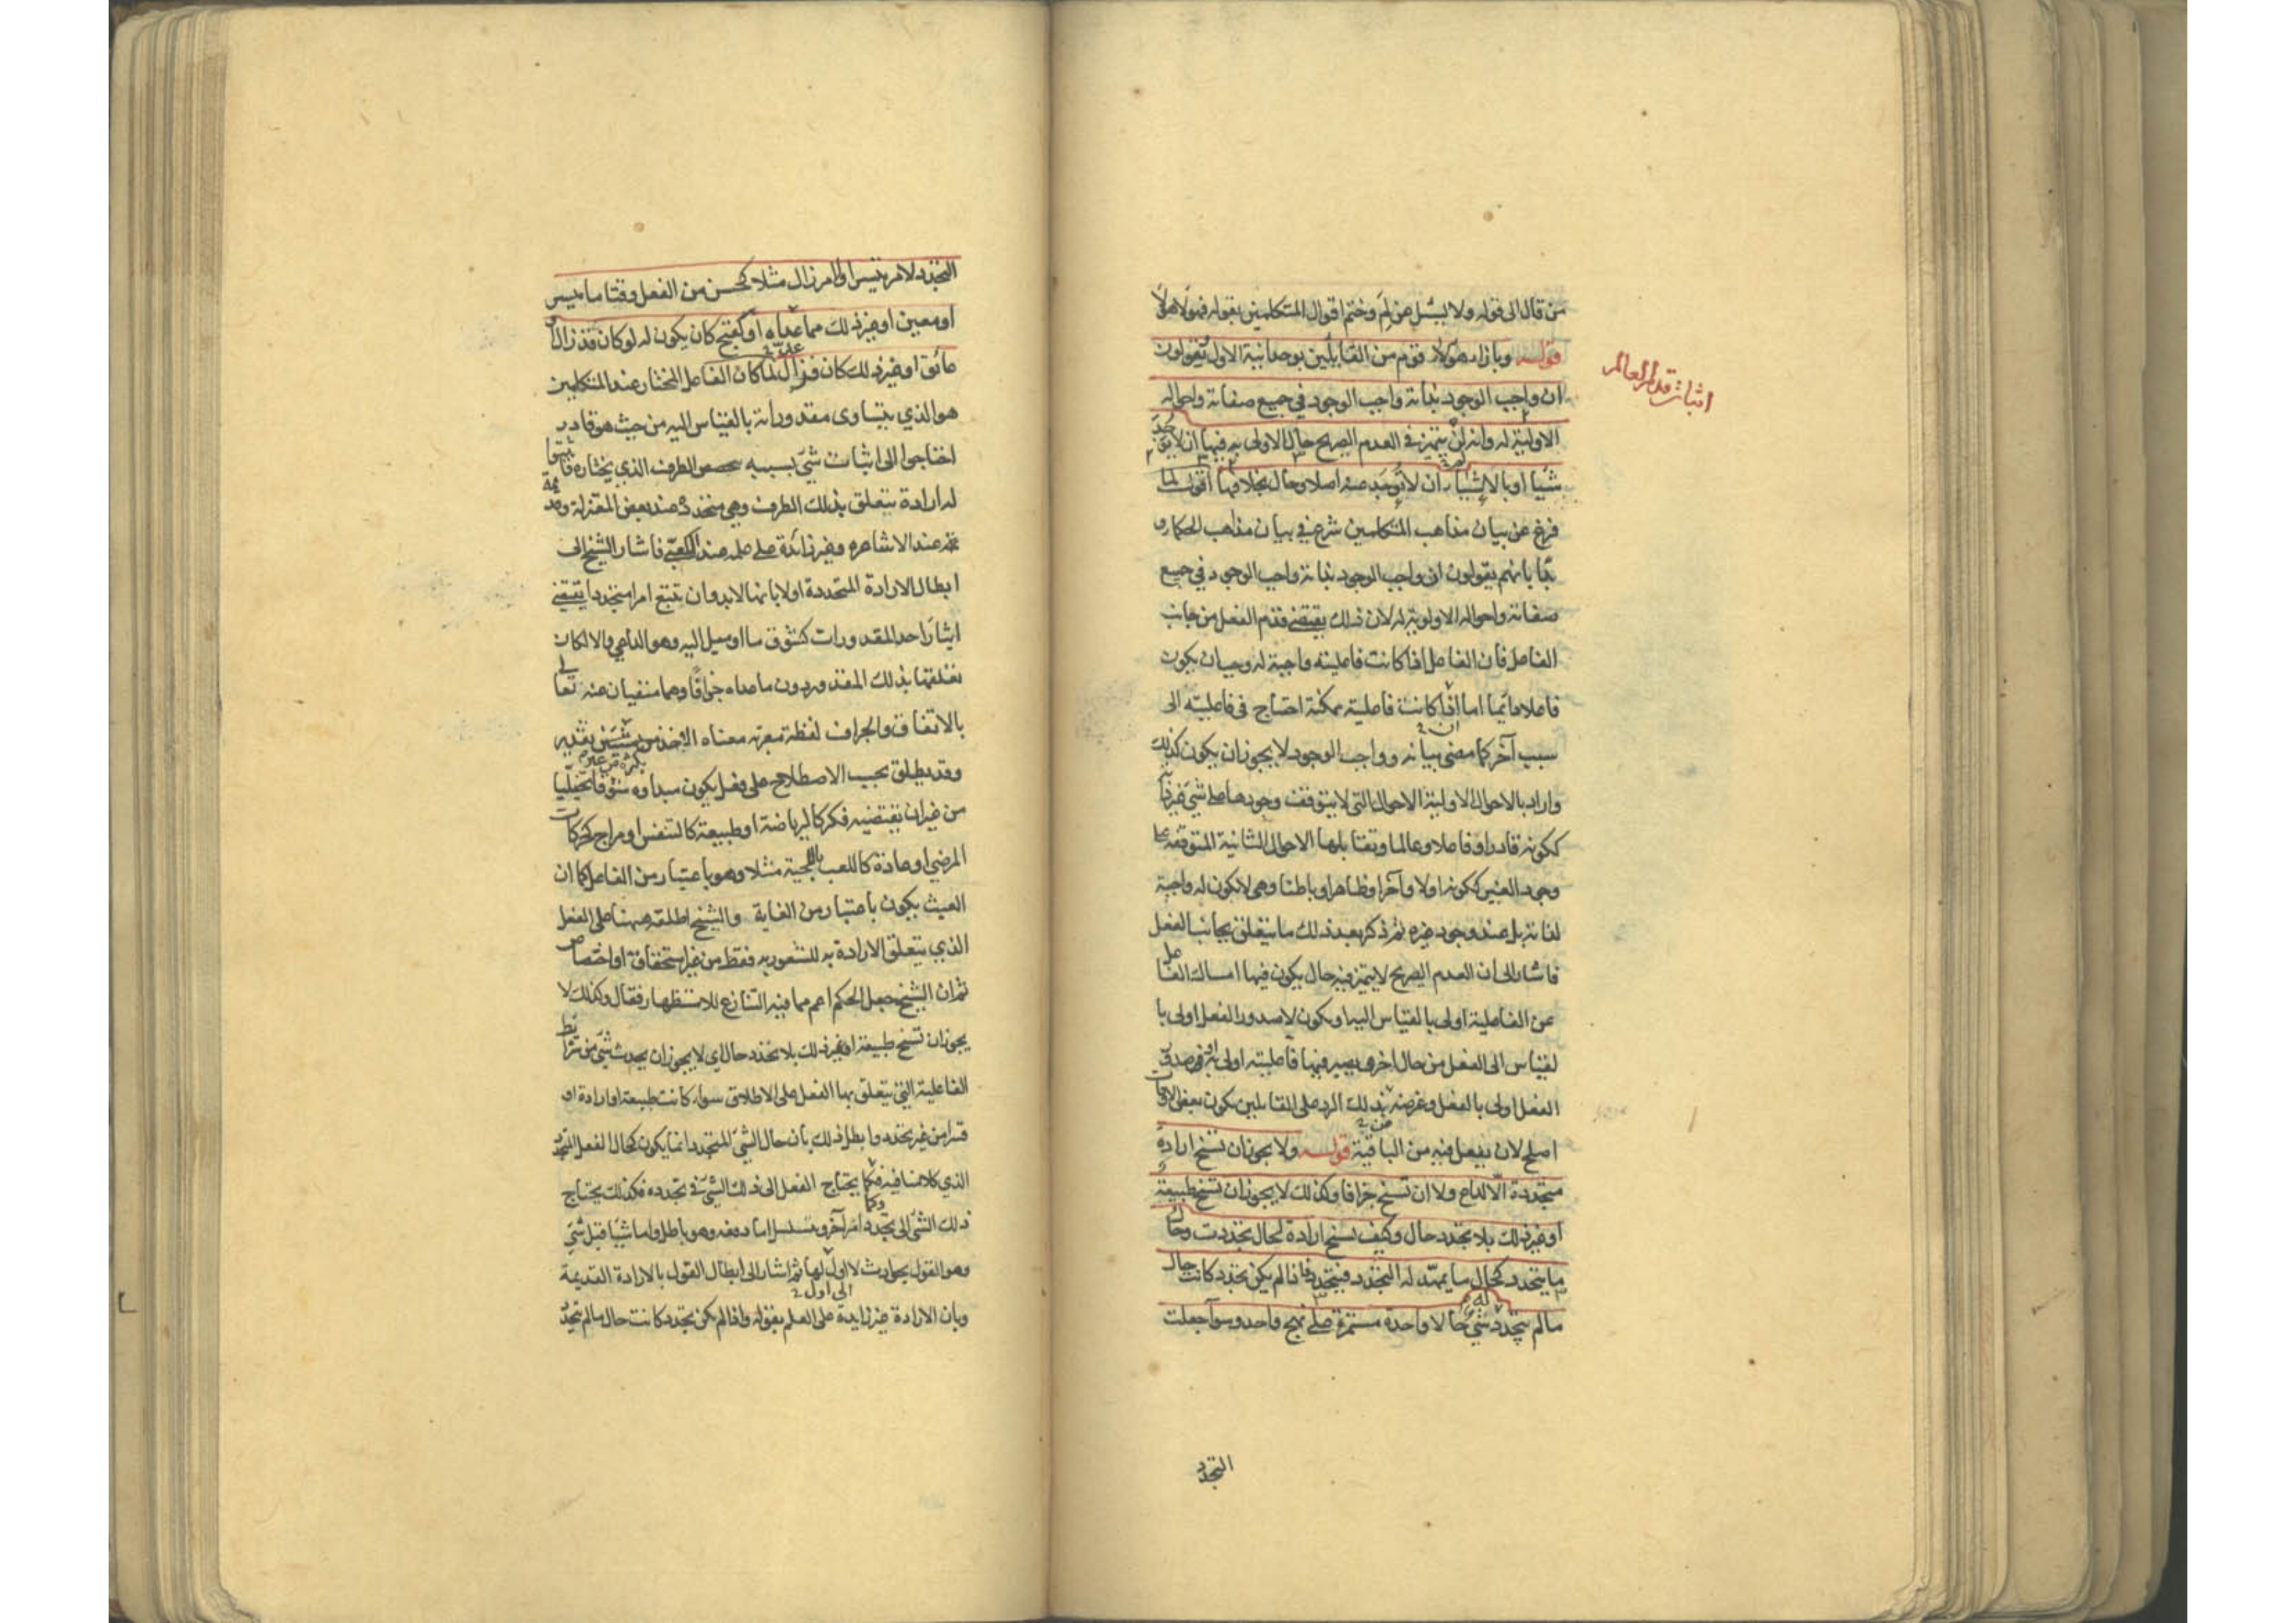 من قال الى قوله ولا يسئل عن لم وختم اقوال المتكلمين بقوله فهولاء هولاء
قوله وبازاء هولاء قوم من القايلين بوحدانية الاول يقولون
ان واجب الوجود بذاته واجب الوجود في جميع صفاته واحواله
الاولية له وانه لن يتميز في العدم الصريح حال الاولى به فيها ان لا يوجد
شيئا او بالاشياء ان لا توجد عنه اصلا وحال بخلافها اقول لما
فرغ عن بيان مذاهب المتكلمين شرع في بيان مذاهب الحكماء و
بدأ بانهم يقولون ان واجب الوجود بذاته واجب الوجود في جميع
صفاته واحواله الاولوية له لان ذلك يقتضي قدم الفعل من جانب
الفاعل فان الفاعل اذا كانت فاعليته واجبة له وجب ان يكون
فاعلا دائما اما اذا كانت فاعليته ممكنة احتاج في فاعليته الى
سبب آخر كما مضى بيانه وواجب الوجود لا يجوز ان يكون كذلك
واراد بالاحوال الاولية الاحوال التي لا يتوقف وجودها على شيء غير ذاته
ككونه قادرا وفاعلا وعالما وتقابلها الاحوال الثانية المتوقفة على
وجود الغير ككونه اولا وآخرا وظاهرا وباطنا وهي لا تكون له واجبة
لذاته بل عند وجود غيره ثم ذكر بعد ذلك ما يتعلق بجانب الفعل
فاشار الى ان العدم الصريح لا يتميز فيه حال يكون فيها امساك الفاعل
عن الفاعلية اولى بالقياس اليه او يكون لا صدور الفعل اولى با
لقياس الى الفعل من حال اخرى يصير فيها فاعليته اولى به او صدور
الفعل اولى بالفعل وغرضه بذلك الرد على القايلين بكون بعض الاوقات
اصلح لان يفعل فيه من الباقية قوله ولا يجوز ان تسنح ارادة
متجددة الا لداع ولا ان تسنح جزافا وكذلك لا يجوز ان تسنح طبيعة
او غير ذلك بلا تجدد حال وكيف تسنح ارادة لحال تجددت وحال
ما يتجدد كحال ما يمهد له التجدد فيتجدد فاذا لم يكن تجدد كانت حال
ما لم يتجدد شيء حالا واحدة مستمرة على نهج واحد وسواء جعلت
التجدد
اثبات قدم العالم
التجدد لامر تيسر او لامر زال مثلا كحسن من الفعل وقتا ما تيسر
او معين او غير ذلك مما عداه او كقبح كان يكون له لو كان قد زال او
عائق او غير ذلك كان فزال لما كان الفاعل المختار عند المتكلمين
هو الذي يتساوى مقدوراته بالقياس اليه من حيث هو قادر
احتاجوا الى اثبات شيء بسببه تخصص الطرف الذي يختاره فاثبتوا
له ارادة تتعلق بذلك الطرف وهي متجددة عند بعض المعتزلة وقديمة
عند الاشاعره وغير زائدة على علمه عند الكعبي فاشار الشيخ الى
ابطال الارادة المتجددة اولا بانها لا بد وان تتبع امرا متجددا يقتضي
ايثار احد المقدورات كشوق ما او ميل اليه وهو الداعي والا لكان
تعلقها بذلك المقدور دون ما عداه جزافا وهما منفيان عنه تعالى
بالاتفاق والجزاف لفظة معربة معناه الاخذ بكثرة من غير تقدير
وقد يطلق بحسب الاصطلاح على فعل يكون مبداوه شوقا تخيليا
من غير ان يقتضيه فكر كالرياضة او طبيعة كالتنفس او مزاج كحركات
المرضى او عادة كاللعب باللحية مثلا وهو باعتبار من الفاعل كما ان
العبث يكون باعتبار من الغاية والشيخ اطلقه ههنا على الفعل
الذي يتعلق الارادة به للشعور به فقط من غير استحقاق او اختصاص
ثم ان الشيخ جعل الحكم اعم مما فيه التنازع للاستظهار فقال وكذلك لا
يجوز ان تسنح طبيعة او غير ذلك بلا تجدد حال اي لا يجوز ان يحدث شيء من شرائط
الفاعلية التي يتعلق بها الفعل على الاطلاق سواء كانت طبيعة او ارادة او
قسرا من غير تجدد وابطل ذلك بان حال الشيء المتجدد انما يكون كحال الفعل المتجدد
الذي كلامنا فيه فكما يحتاج الفعل الى ذلك الشيء في تجدده فكذلك يحتاج
ذلك الشيء الى تجدد امر آخر ويتسلسل اما دفعه وهو باطل واما شيئا قبل شيء
وهو القول بحوادث لا اول لها ثم اشار الى ابطال القول بالارادة القديمة
وبان الارادة غير زايدة على العلم بقوله واذا لم يكن تجدد كانت حال ما لم يتجدد